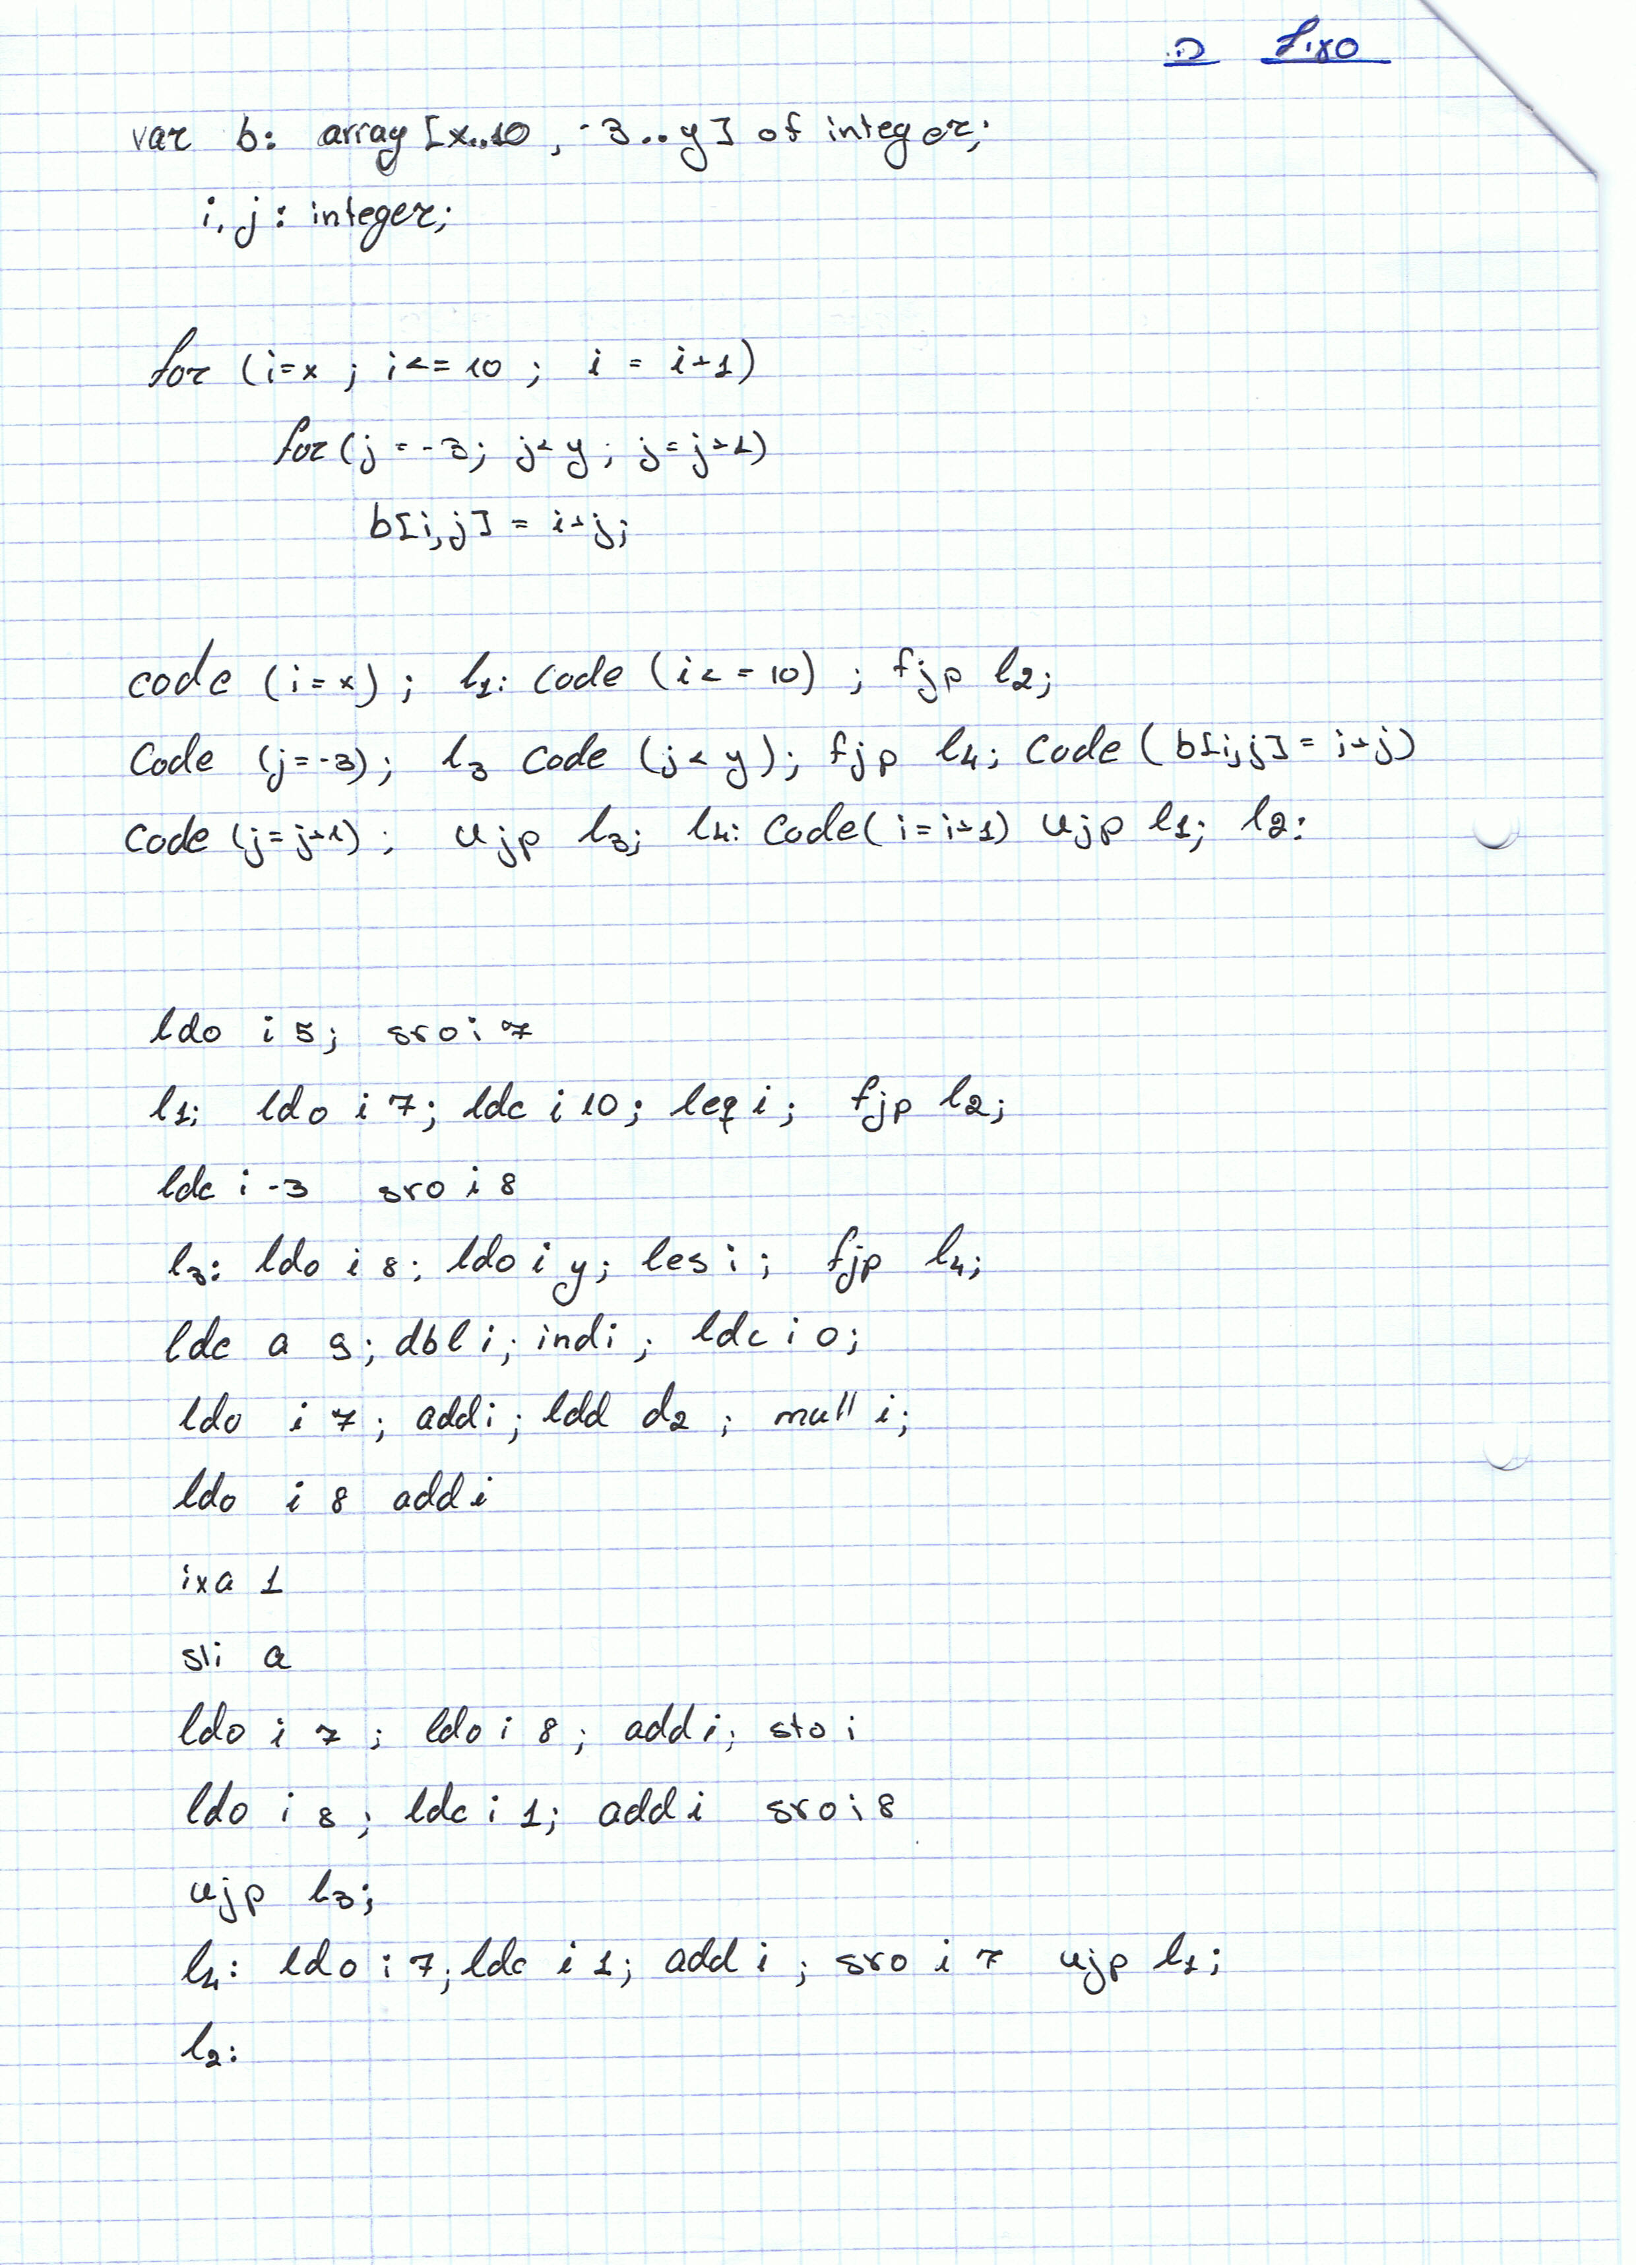 var b: array [x..10, -3..y] of integer;
i, j: integer;
for (i=x ; i<=10 ; i = i+1)
for (j = -3; j< y; j=j+1)
b[i,j] = i+j;
code (i=x); l1: code (i<=10) ; fjp l2;
Code (j=-3); l3 code (j<y); fjp l4; code (b[i,j] = i+j)
code (j=j+1); ujp l3; l4: code(i=i+1) ujp l1; l2:
ldo i 5; sro i 7
l1; ldo i 7; ldc i 10; leq i; fjp l2;
ldc i -3 sro i 8
l3: ldo i 8; ldo i y; les i; fjp l4;
ldc a 9; dbl i; ind i; ldc i 0;
ldo i 7; add i; ldd d2; mull i;
ldo i 8 add i
ixa 1
sli a
ldo i 7; ldo i 8; add i; sto i
ldo i 8; ldc i 1; add i sro i 8
ujp l3;
l4: ldo i 7; ldc i 1; add i; sro i 7 ujp l1;
l2: